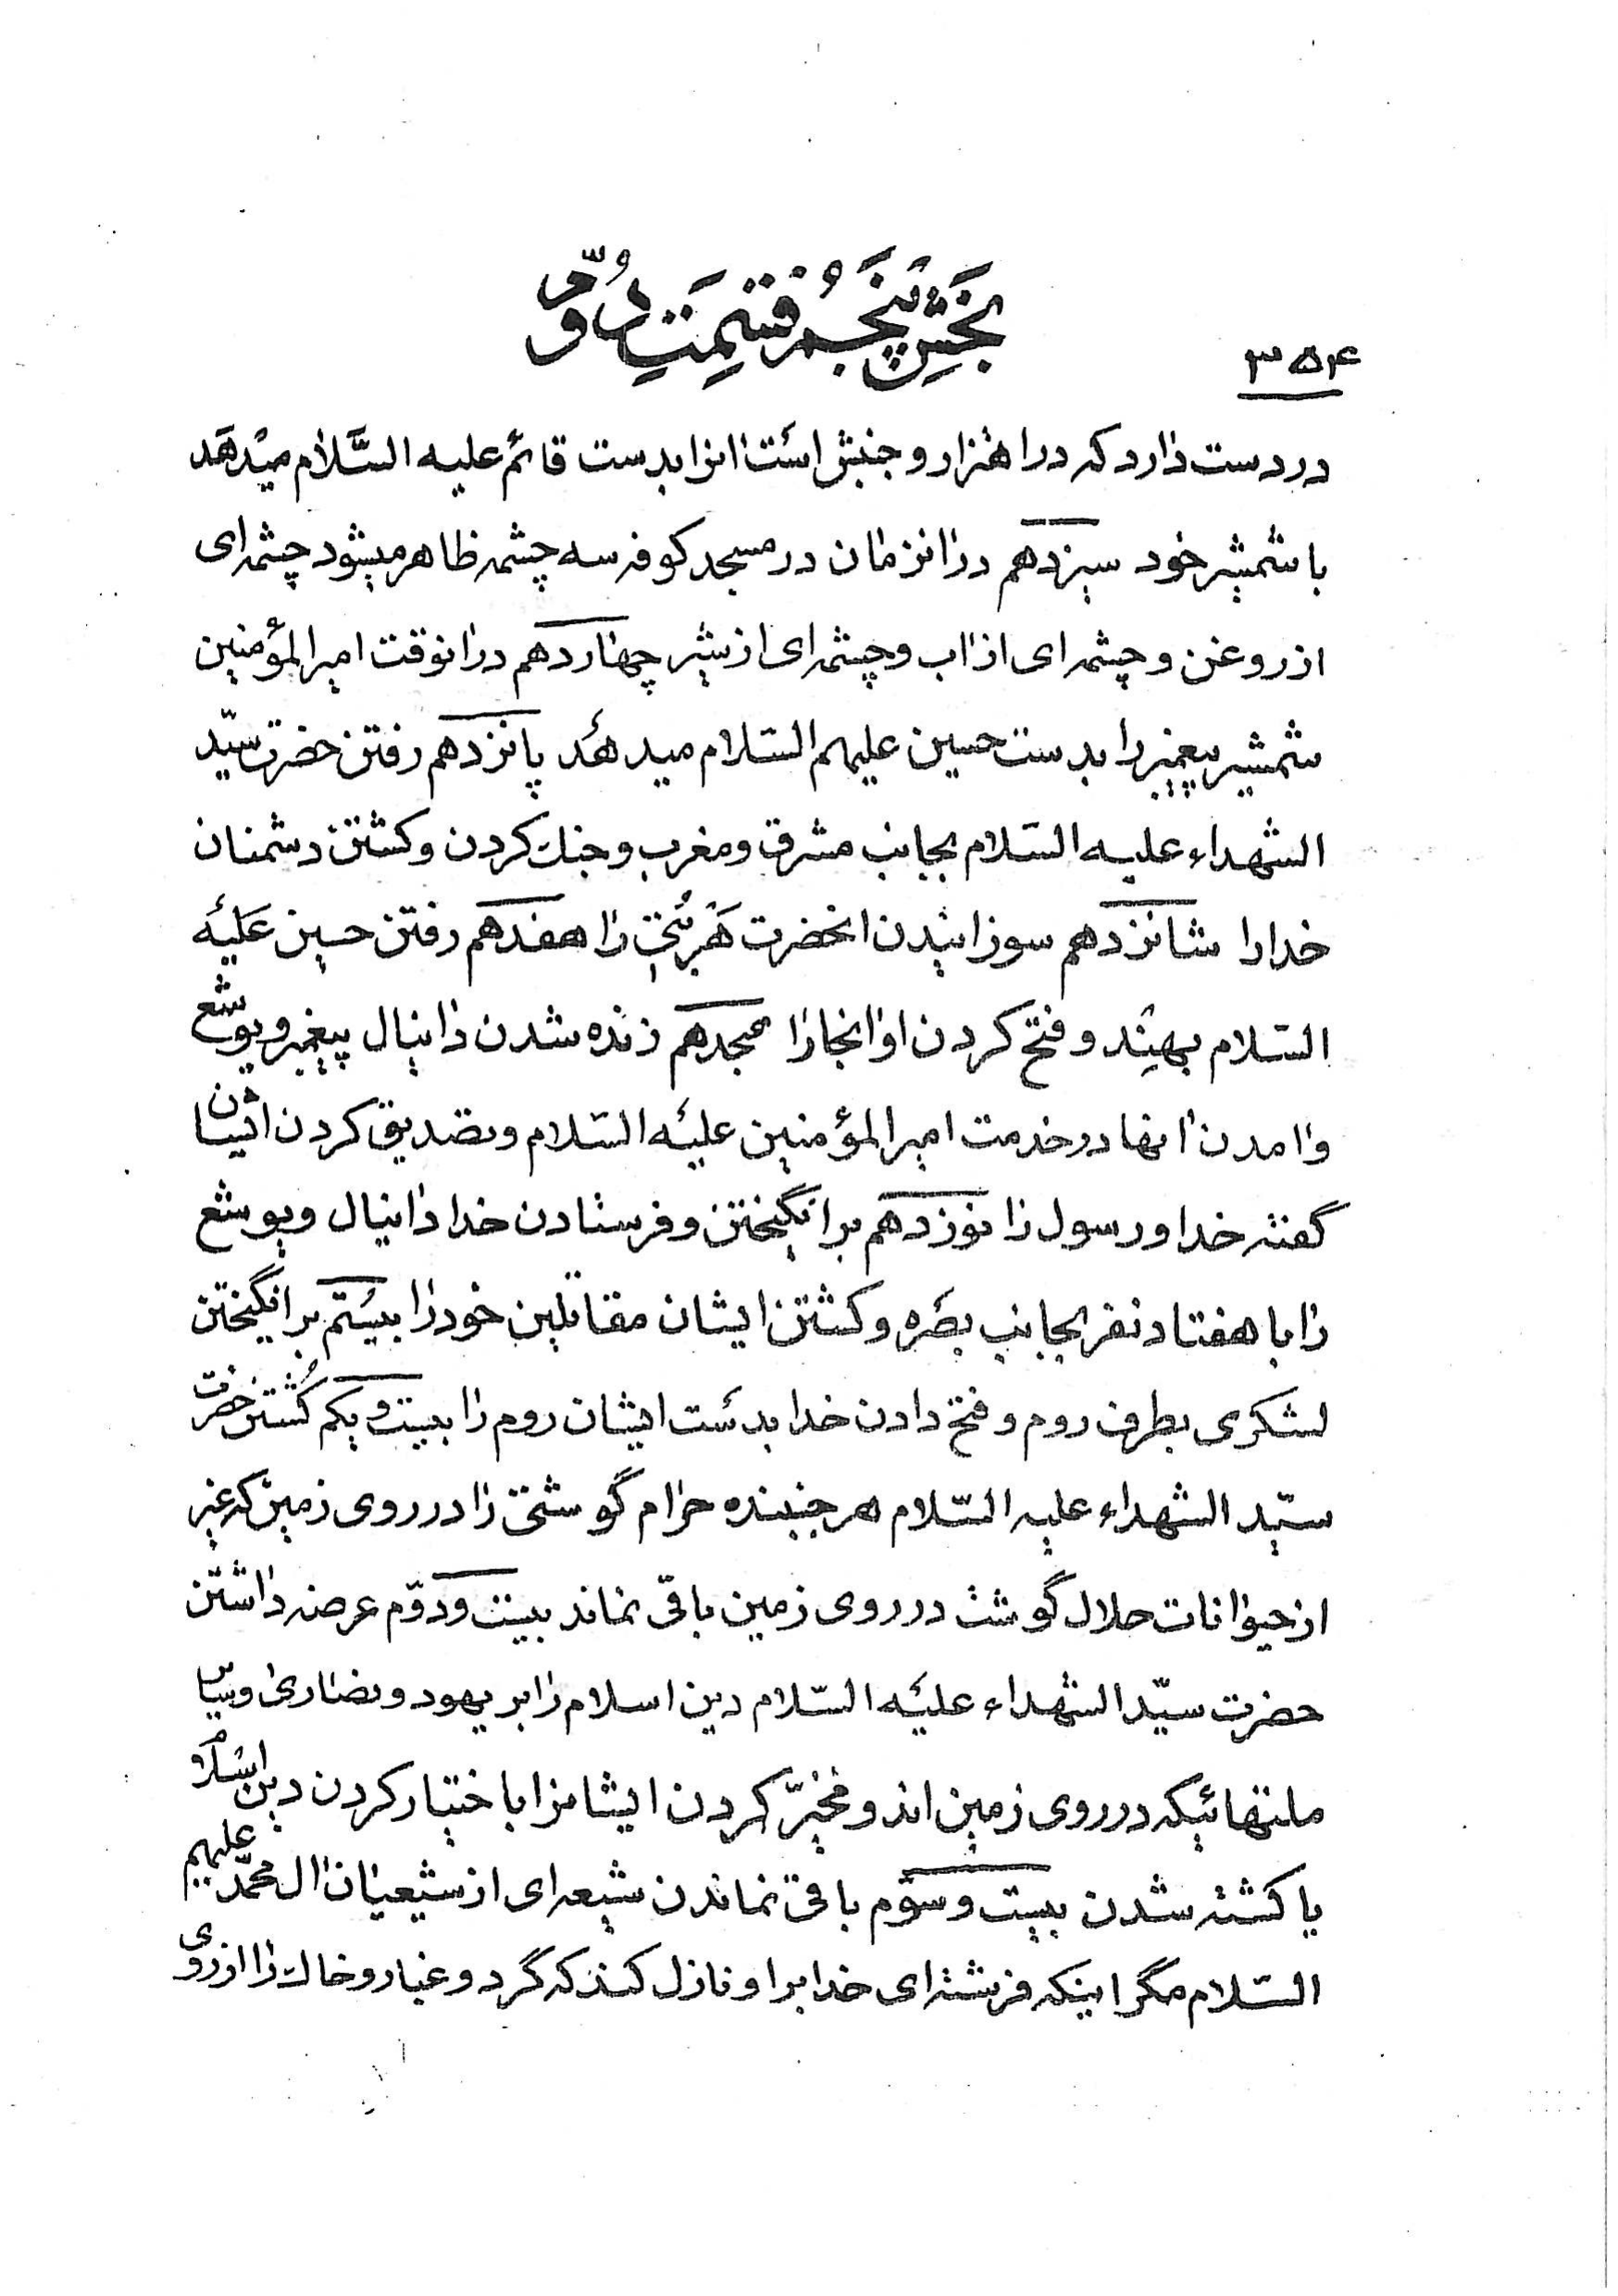 بخش پنجم قسمت دوّم
۳۵۴
در دست دارد که در اهتزار و جنبش است انرا بدست قائم علیه السَّلام میدهد
با شمشیر خود سیزدهم در انزمان در مسجد کوفه سه چشمه ظاهر میشود چشمه‌ای
از روغن و چشمه‌ای از اب و چشمه‌ای از شیر چهاردهم در انوقت امیرالمؤمنین
شمشیر پیغمبر را بدست حسین علیهم السّلام میدهد پانزدهم رفتن حضرت سیّد
الشهداء علیه السّلام بجانب مشرق و مغرب و جنك کردن و کشتن دشمنان
خدا را شانزدهم سوزانیدن انحضرت هر بتی را هفدهم رفتن حسین علیه
السّلام بهند و فتح کردن او انجا را هیجدهم زنده شدن دانیال پیغمبر و یوشع
و امدن انها در خدمت امیرالمؤمنین علیه السّلام و تصدیق کردن ایشان
گفته خدا و رسول را نوزدهم برانگیختن و فرستادن خدا دانیال و یوشع
را با هفتاد نفر بجانب بصره و کشتن ایشان مقاتلین خود را بیستم برانگیختن
لشکری بطرف روم و فتح دادن خدا بدست ایشان روم را بیست و یکم کُشتن حضرت
سیّد الشهداء علیه السّلام هر جنبنده حرام گوشتی را در روی زمین که غیر
از حیوانات حلال گوشت در روی زمین باقی نماند بیست و دوّم عرضه داشتن
حضرت سیّد الشهداء علیه السّلام دین اسلام را بر یهود و نصاری و سایر
ملتهائیکه در روی زمین اند و مخیّر کردن ایشانرا باختیار کردن دین اسلام
یا کشته شدن بیست و سوّم باقی نماندن شیعه‌ای از شیعیان ال محمّد علیهم
السّلام مگر اینکه فرشته‌ای خدا بر او نازل کند که گرد و غبار و خاك را از روی